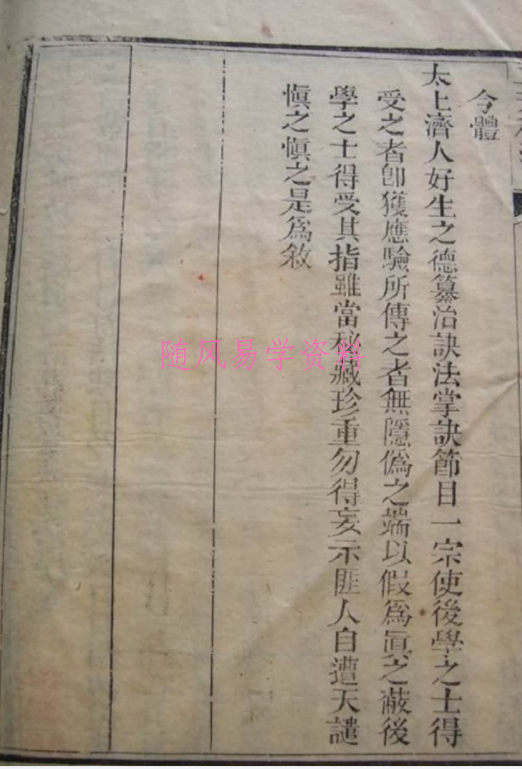 令體
太上濟人好生之德纂治訣法掌訣節目一宗使後學之士得
受之者卽獲應驗所傳之者無隱僞之端以假爲眞之蔽後
學之士得受其指雖當秘藏珍重勿得妄示匪人自遭天譴
愼之愼之是爲敘
随风易学资料